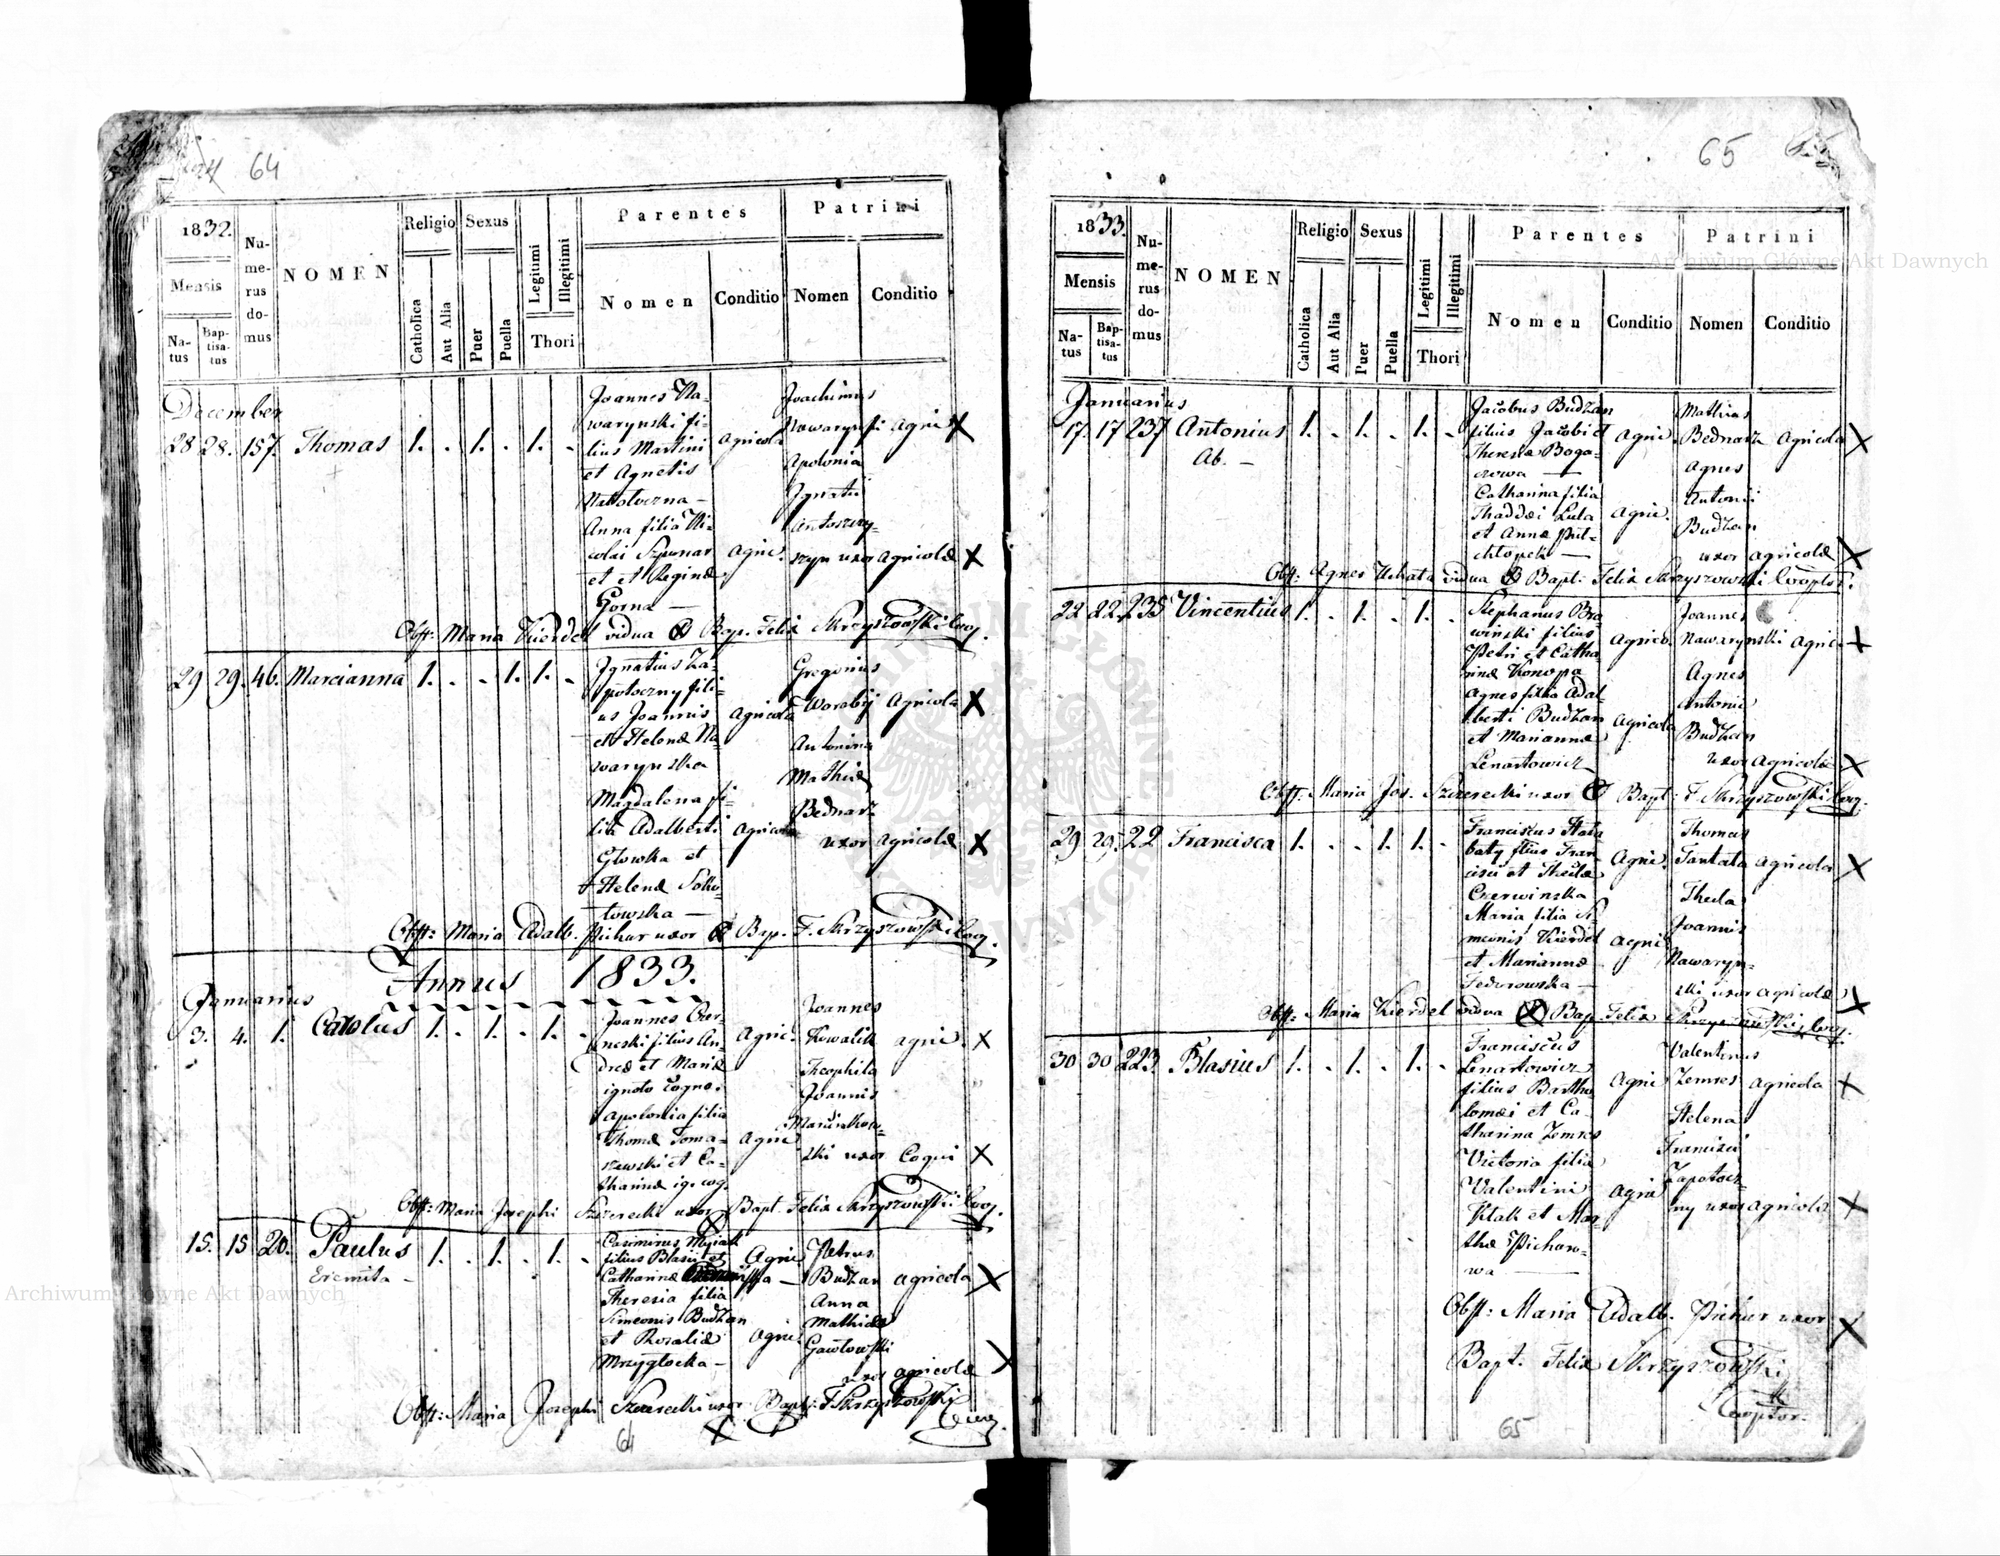 64
1832.
Mensis
Na-
tus
Bap-
tisa-
tus
Nu-
me-
rus
do-
mus
NOMEN
Religio
Catholica
Aut Alia
Sexus
Puer
Puella
Legitimi
Illegitimi
Thori
Parentes
Nomen
Conditio
Patrini
Nomen
Conditio
December
28 28. 157. Thomas 1. . 1. . 1. .
Joannes Na-
warynski fi-
lius Martini
et Agnetis
Anna filia Ni-
colai Szpunar
et et Reginæ
Gorna —
Agricola
Agric.
Joachimus
Nawarynski Agric.
Apolonia
Ignatii
Antoszczy-
szyn uxor agricolæ
Obst: Maria Kierdel vidua Bap. Felix Skrzyszowski Coop.
29 29. 46. Marcianna 1. . . 1. 1. .
Ignatius Za-
potoczny fili-
us Joannis
et Helenæ Na-
warynska
Magdalena fi-
lia Adalberti
Glowka et
Helenæ Soko-
towska —
Agricola
Agricola
Gregorius
Worobij Agricola
Antonina
Mathiæ
Bednarz
uxor agricolæ
Obst: Maria Adalb. Pichur uxor Bap. F. Skrzyszowski Coop.
Annus 1833.
Januarius
3. 4. 1. Carolus 1. . 1. . 1. .
Joannes Czer-
neski filius An-
dreæ et Mariæ
ignoto cogno.
Apolonia filia
Thomæ Toma-
szewski et Ca-
tharinæ ig. cog.
Agric.
Agric.
Joannes
Kowalik agric.
Theophila
Joannis
Marcinkow-
ski uxor Coqui
Obst: Maria Josephi Szczerecki uxor Bapt. Felix Skrzyszowski Coop.
15. 15 20. Paulus 1. . 1. . 1. .
Eremita —
Casimirus
filius Blasii et
Catharinæ
Theresia filia
Simeonis Budzan
et Rosaliæ
Mrzyglocka —
Agric.
Agric.
Petrus
Budzan agricola
Anna
Mathiæ
Gawlowski
uxor agricolæ
Obst: Maria Josephi Szczerecki uxor Bapt: F. Skrzyszowski
Coop.
64
65
1833.
Mensis
Na-
tus
Bap-
tisa-
tus
Nu-
me-
rus
do-
mus
NOMEN
Religio
Catholica
Aut Alia
Sexus
Puer
Puella
Legitimi
Illegitimi
Thori
Parentes
Nomen
Conditio
Patrini
Nomen
Conditio
Januarius
17. 17 237 Antonius 1. . 1. . 1. .
Ab. —
Jacobus Budzan
filius Jacobi et
Theresiæ Boga-
czowa —
Catharina filia
Thaddæi Luta
et Annæ Put-
chlopek —
Agric.
Agric.
Mathias
Bednarz Agricola
Agnes
Antonii
Budzan
uxor agricolæ
Obst: Agnes vidua Bapt: Felix Skrzyszowski Cooptor.
22 22. 235 Vincentius 1. . 1. . 1. .
Stephanus Bra-
winski filius
Petri et Catha-
rinæ Konopa
Agnes filia Adal-
berti Budzan
et Mariannæ
Lenartowicz
Agrico.
Agricola
Joannes
Nawarynski Agric.
Agnes
Antonii
Budzan
uxor agricolæ
Obst: Maria Jos. Szczerecki uxor Bapt: F. Skrzyszowski Coop.
29 29. 22 Francisca 1. . . 1. 1. .
Franciscus
baty filius Fran-
cisci et Theclæ
Czerwinska
Maria filia Si-
meonis Kierdel
et Mariannæ
Fedorowska —
Agric.
Agric.
Thomas
Tantata agricola
Thecla
Joannis
Nawaryn-
ski uxor agricolæ
Obst: Maria Kierdel vidua Bap. Felix Skrzyszowski Coop.
30 30 223. Blasius 1. . 1. . 1. .
Franciscus
Lenartowicz
filius Bartho-
lomæi et Ca-
tharina Zemres
Victoria filia
Valentini
Ktak et Mar-
thæ Pichow-
wa —
Agric
Agric
Valentinus
Zemres agricola
Helena
Francisci
Zapotocz-
ny uxor agricolæ
Obst: Maria Adalb. Pichur uxor
Bapt. Felix Skrzyszowski
Cooptor.
65
Archiwum Główne Akt Dawnych
Archiwum Główne Akt Dawnych